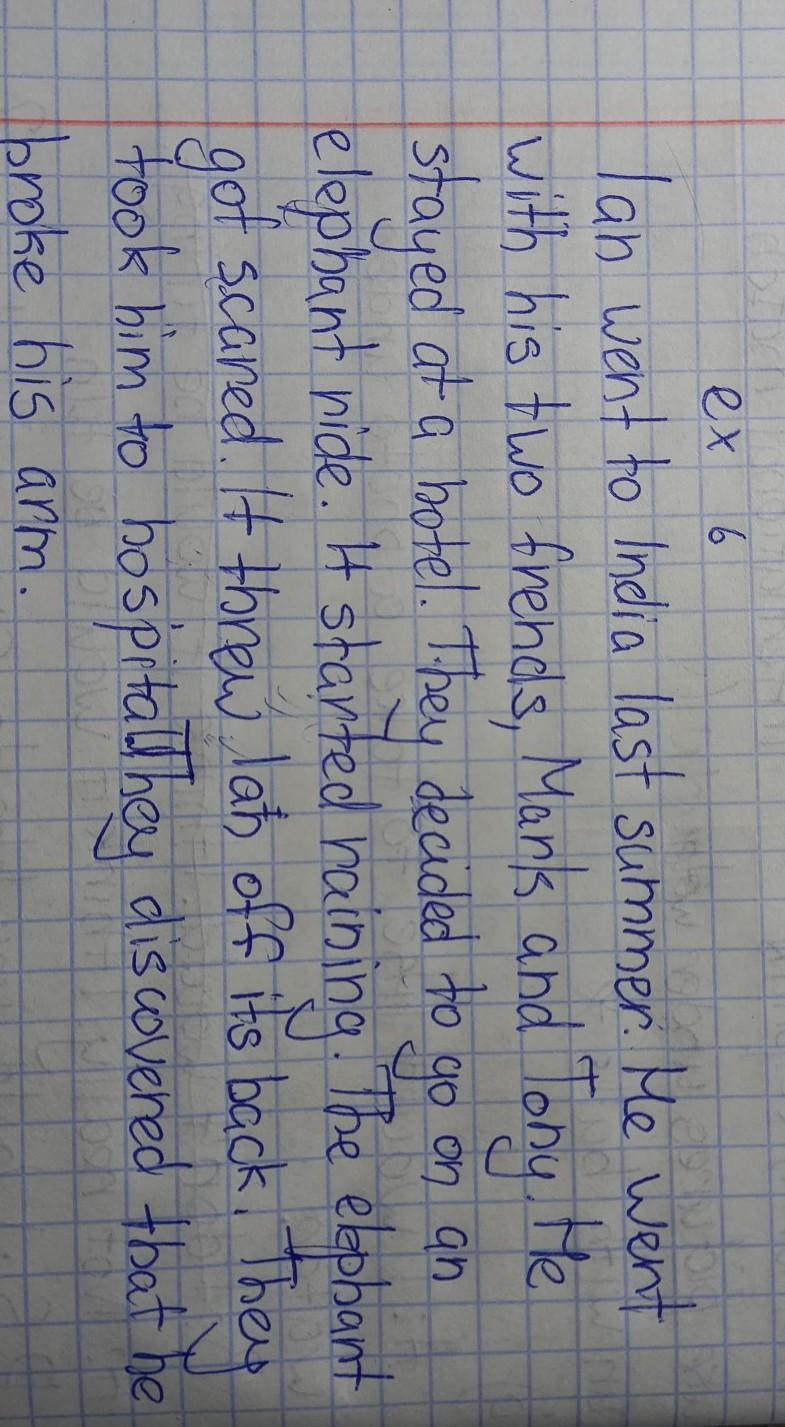 ex 6
Ian went to India last summer. He went
with his two frends, Mark and Tony. He
stayed at a hotel. They decided to go on an
elephant ride. It started raining. The elephant
got scared. It threw Ian off its back. They
took him to hospital They discovered that he
broke his arm.